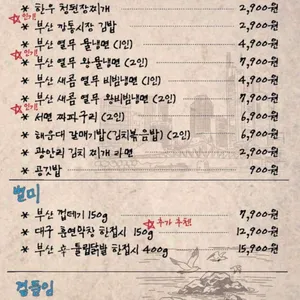 인기! * 한우 청된장찌개 2,900원
* 부산 깡통시장 김밥 2,900원
인기! * 부산 열무 물냉면 (1인) 4,900원
* 부산 열무 왕물냉면 (2인) 7,900원
인기! * 부산 새콤 열무 비빔냉면 (1인) 4,900원
* 부산 새콤 열무 왕비빔냉면 (2인) 7,900원
인기! * 서면 짜파구리 (2인) 6,900원
* 해운대 갈매기밥(김치볶음밥) (2인) 6,900원
* 광안리 김치 찌개 라면 2,900원
* 공깃밥 900원
별미
* 부산 껍데기 150g 7,900원
추가 추천!
* 대구 훈연막창 한접시 150g 12,900원
* 부산 숯 돌림닭발 한접시 400g 15,900원
곁들임